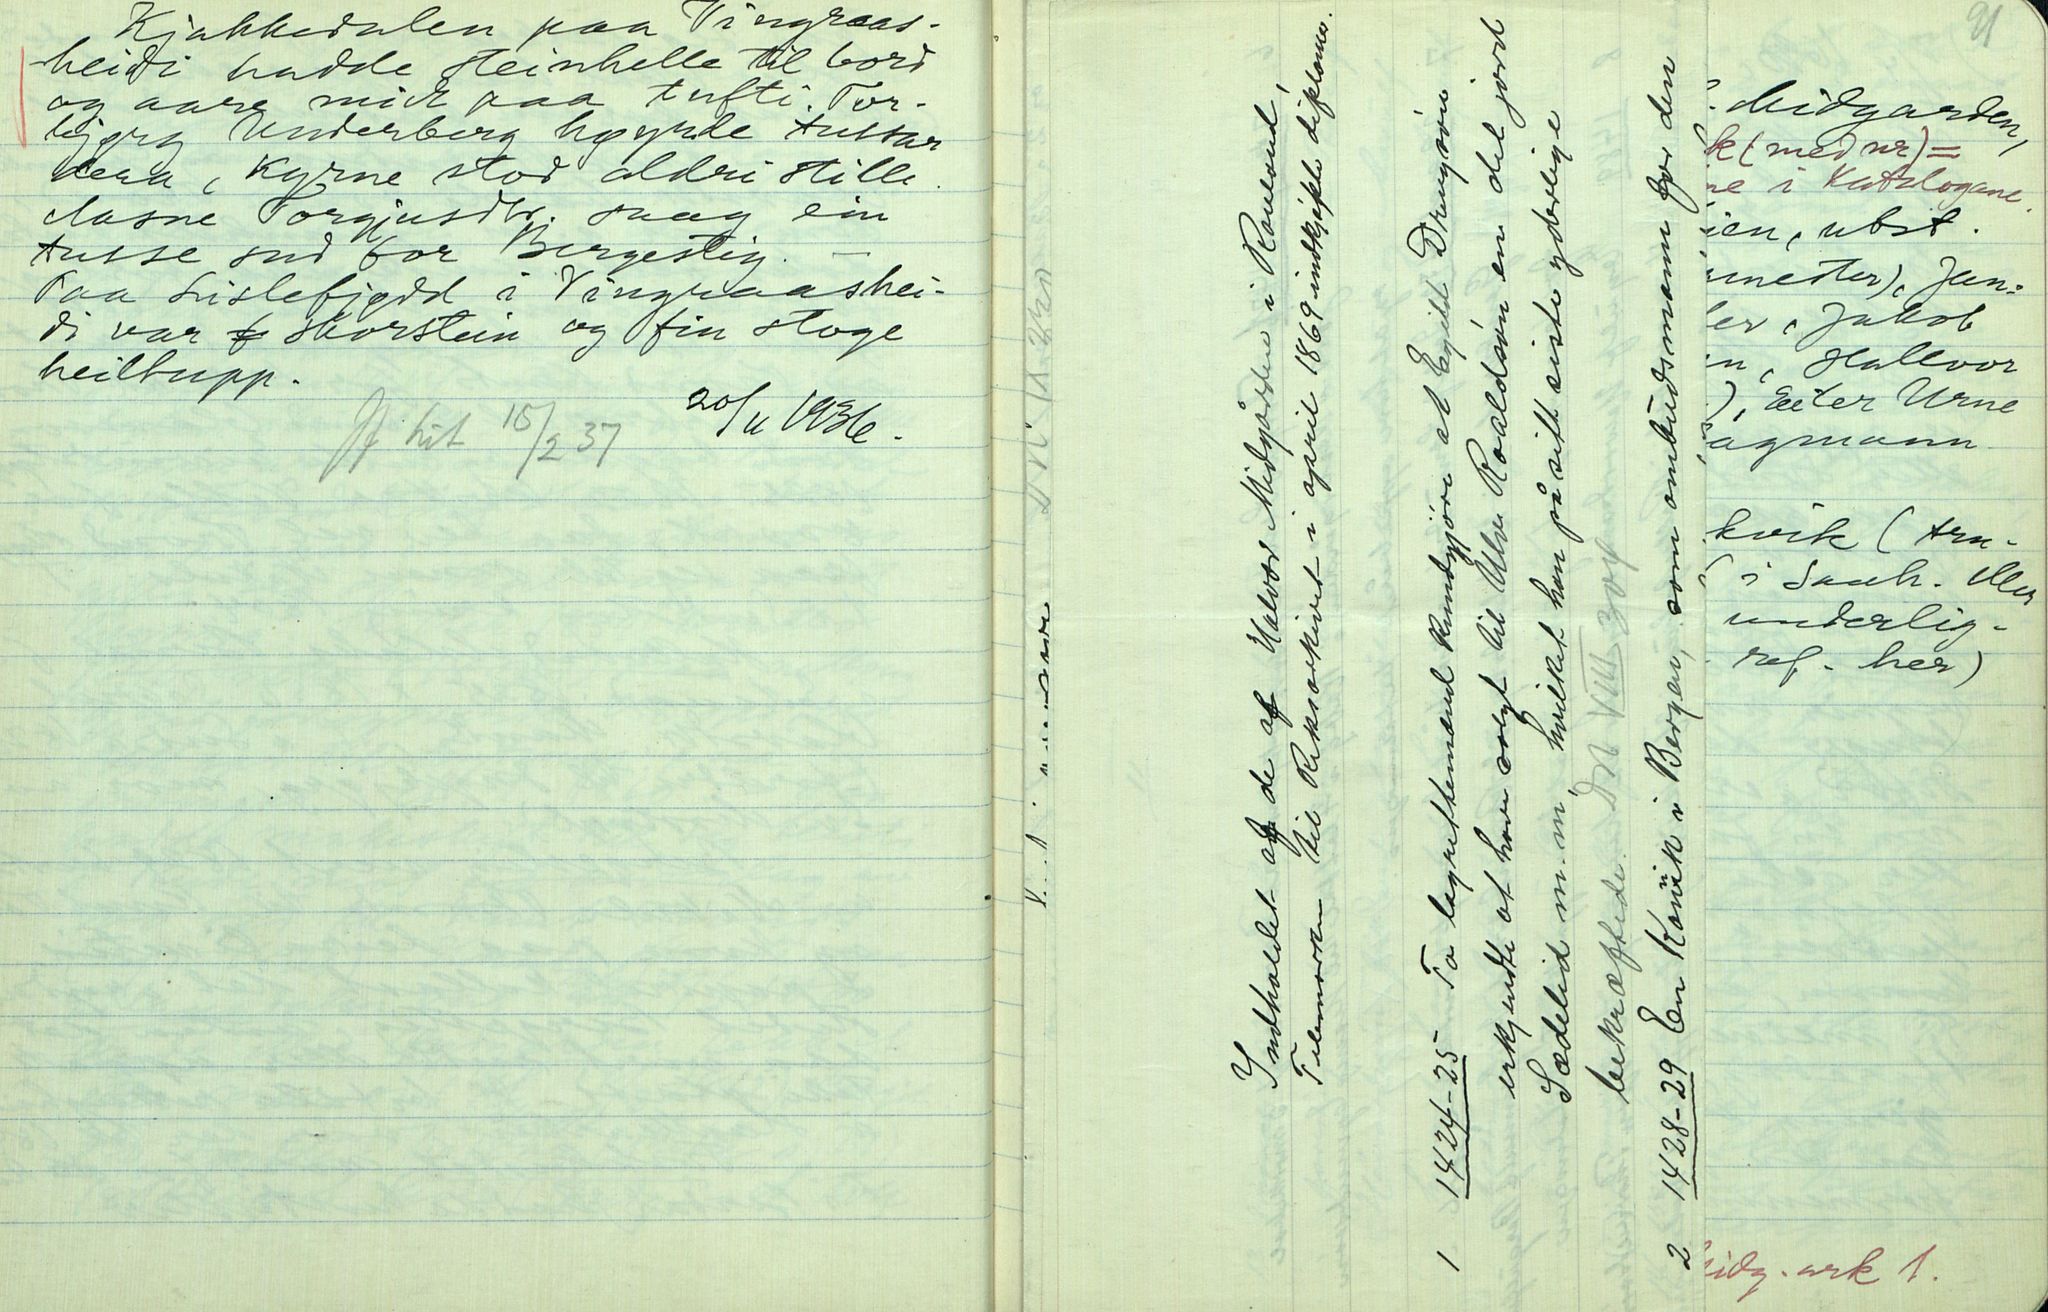 Kjakkedalen paa Vingraas-
heidi hadde steinhelle til bord
og aare midt paa tufti. Tor-
bjørg Underberg høyrde tussar
kyrne stod aldri stille.
Aasne Torgjusdtr. saag ein
tusse sud for Bergestig. —
Paa Lislefjødd i Vingraashei-
di var skorstein og fin stoge
heiltupp.
20/11 1936.
15/2 37
Indholdet af de af Halvor Midgården i Rauland,
Telemarken til Riksarkivet i april 1869 indkjøpte diplomer.
1 1424-25 To lagrettemænd kundgjøre at Egild Drengsøn
erkjendte at have solgt til Ulv Roaldsøn en del jord
Sædelid m.m., hvilket han på sitt siste yderlige
bekræftede. DN VIII 309
2 1428-29 En Kanik i Bergen, som ombudsmann for den
91
Midgarden,
k (med nr) =
ne i Katalogane.
ien, ubst.
mester), Jen-
ler, Jakob
n, Hallvor
), Eiler Urne
lagmann
kvik (Arn-
i Sauh.
underlig-
ref. her)
Midg. ark 1.